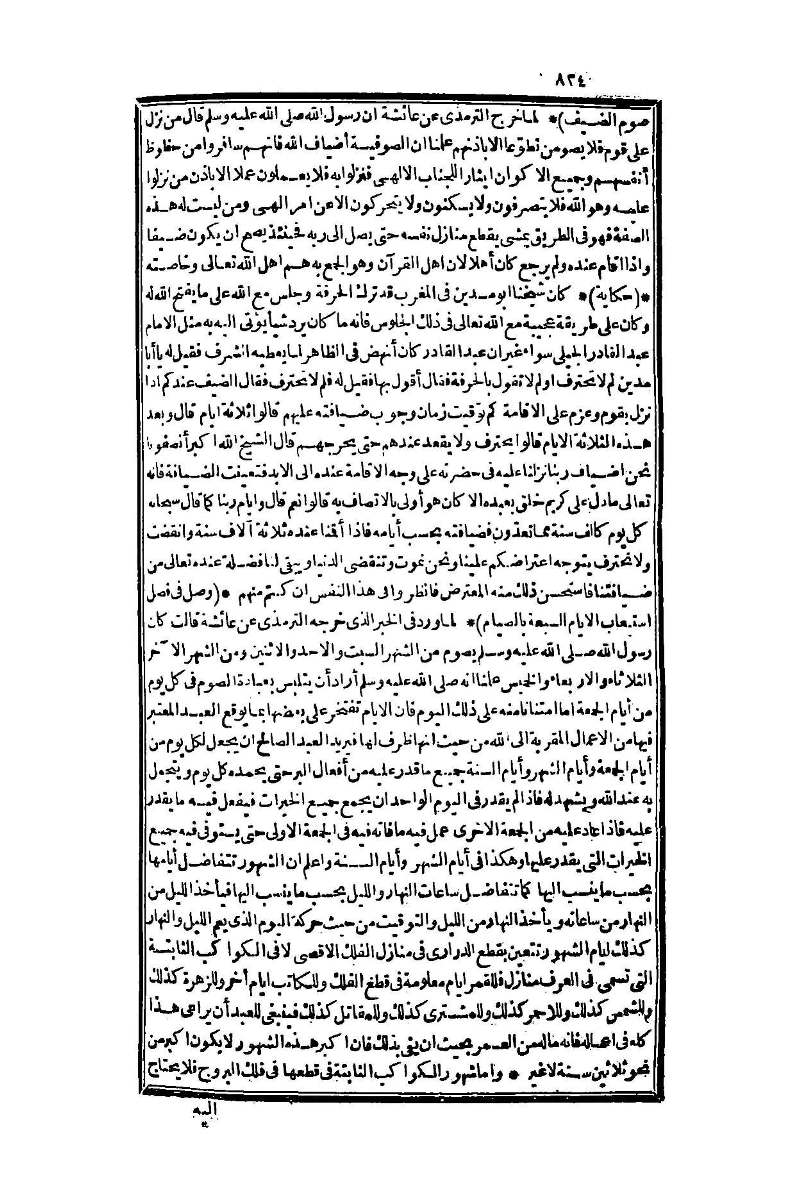 ٨٢٤
صوم الضيف)* لما خرج الترمذى عن عائشة ان رسول الله صلى الله عليه وسلم قال من نزل
على قوم فلا يصومن تطوّعا الا باذنهم علمنا ان الصوفية أضياف الله فانهم سافروا من حظوظ
أنفسهم وجميع الاكوان ايثار اللجناب الالهى فنزلوا به فلا يعملون عملا الا باذن من نزلوا
عليه وهو الله فلا يتصرفون ولا يسكنون ولا يتحركون الا عن امر الهى ومن ليست له هذه
الصفة فهو فى الطريق يمشى يقطع منازل نفسه حتى يصل الى ربه فحينئذ يصح ان يكون ضيفا
واذا اقام عنده ولم يرجع كان أهلا لان اهل القرآن وهو الجمع به هم اهل الله تعالى وخاصته
*(حكاية)* كان شيخنا ابو مدين فى المغرب قد ترك الحرفة وجلس مع الله على ما يفتح الله له
وكان على طريقة عجيبة مع الله تعالى فى ذلك الجلوس فانه ما كان يرد شيأ يؤتى اليه به مثل الامام
عبد القادر الجيلى سواء غير ان عبد القادر كان أنهض فى الظاهر لما يعطيه الشرف فقيل له يا أبا
مدين لم لا تحترف او لم لا تقول بالحرفة فقال أقول بها فقيل له فلم لا تحترف فقال الضيف عندكم اذا
نزل بقوم وعزم على الاقامة كم توقيت زمان وجوب ضيافته عليهم قالوا ثلاثة ايام قال وبعد
هذه الثلاثة الايام قالوا يحترف ولا يقعد عندهم حتى يحرجهم قال الشيخ الله اكبر أنصفونا
نحن اضياف ربنا نزلنا عليه فى حضرته على وجه الاقامة عنده الى الابد فتعينت الضيافة فانه
تعالى ما دل على كريم خلق بعبده الا كان هو أولى بالاتصاف به قالوا نعم قال وايام ربنا كما قال سبحانه
كل يوم كالف سنة مما تعدون فضيافته بحسب أيامه فاذا أقمنا عنده ثلاثة آلاف سنة وانقضت
ولا نحترف يتوجه اعتراضكم علينا ونحن نموت وتنقضى الدنيا ويبقى لنا فضلة عنده تعالى من
ضيافتنا فاستحسن ذلك منه المعترض فانظروا فى هذا النفس ان كنتم منهم *(وصل فى فصل
استيعاب الايام السبعة بالصيام)* لما ورد فى الخبر الذى خرجه الترمذى عن عائشة قالت كان
رسول الله صلى الله عليه وسلم يصوم من الشهر السبت والاحد والاثنين ومن الشهر الآخر
الثلاثاء والاربعاء والخميس علمنا انه صلى الله عليه وسلم أراد أن يتلبس بعبادة الصوم فى كل يوم
من أيام الجمعة اما امتنانا منه على ذلك اليوم فان الايام تفتخر على بعضها بما يوقع العبد المعتبر
فيها من الاعمال المقربة الى الله من حيث انها ظرف لها فيريد العبد الصالح ان يجعل لكل يوم من
أيام الجمعة وأيام الشهر وأيام السنة جميع ما قدر عليه من أفعال البر حتى يحمده كل يوم ويتجمل
به عند الله ويشهد له فاذا لم يقدر فى اليوم الواحد ان يجمع جميع الخيرات فيفعل فيه ما يقدر
عليه فاذا عاد عليه من الجمعة الاخرى عمل فيه ما فاته فيه فى الجمعة الاولى حتى يستوفى فيه جميع
الخيرات التى يقدر عليها وهكذا فى أيام الشهر وأيام السنة واعلم ان الشهور تتفاضل أيامها
بحسب ما ينسب اليها كما تتفاضل ساعات النهار والليل بحسب ما ينسب اليها فيأخذ الليل من
النهار من ساعاته ويأخذ النهار من الليل والتوقيت من حيث حركة اليوم الذى يعم الليل والنهار
كذلك ايام الشهور تتعين بقطع الدرارى فى منازل الفلك الاقصى لا فى الكواكب الثابتة
التى تسمى فى العرف منازل فللقمر ايام معلومة فى قطع الفلك وللكاتب ايام أخر وللزهرة كذلك
وللشمس كذلك وللاحمر كذلك وللمشترى كذلك وللمقاتل كذلك فينبغى للعبد أن يراعى هذا
كله فى اعماله فانه ماله من العمر بحيث ان يفى بذلك فان اكبر هذه الشهور لا يكون اكبر من
نحو ثلاثين سنة لا غير * واما شهور الكواكب الثابتة فى قطعها فى فلك البروج فلا يحتاج
اليه